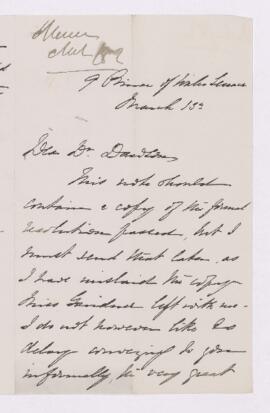 9 Prince of Wales Terrace
March 13th
Dear Dr. Davidson,
This note should
contain a copy of the formal
resolution passed, but I
must send that later, as
I have mislaid the copy
Miss Gardner left with me.
I do not however like to
delay conveying to you
informally, the very great